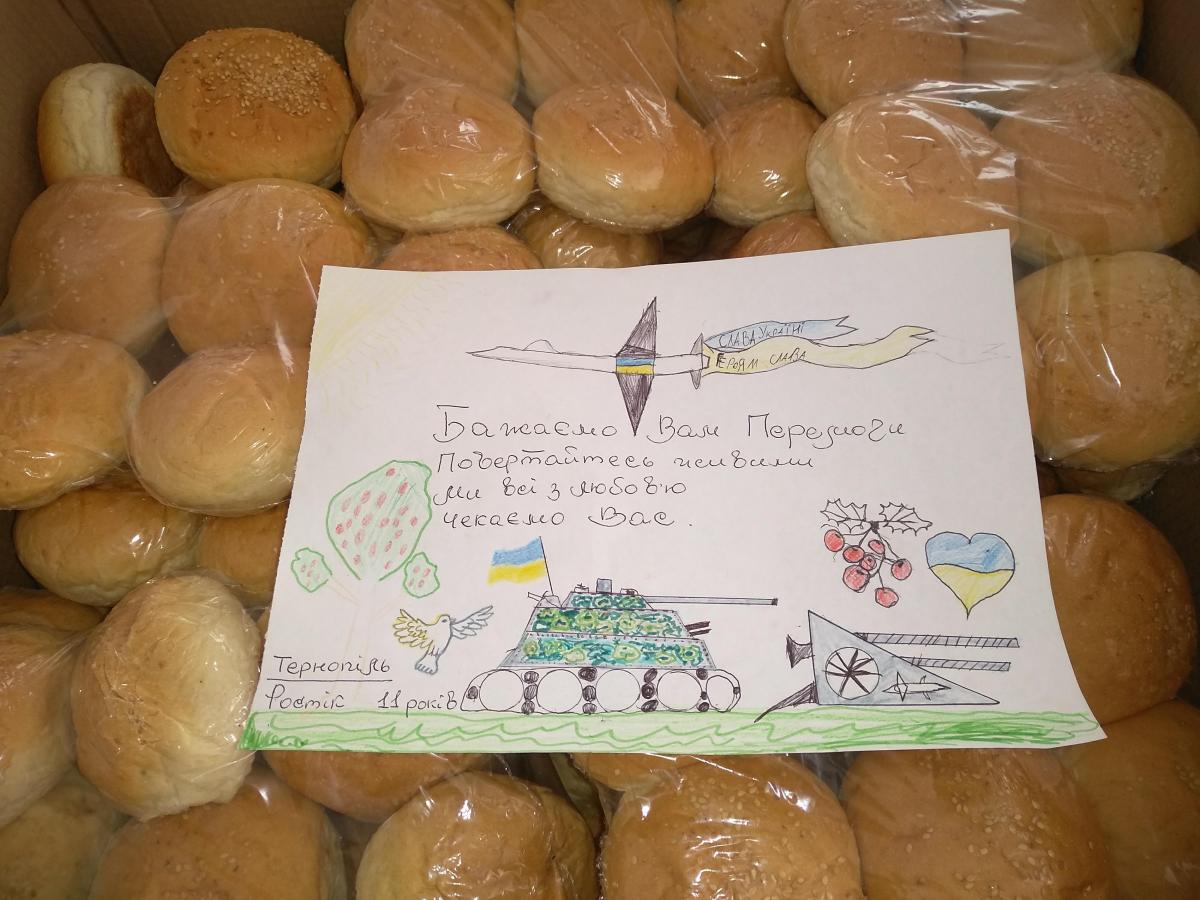 СЛАВА УКРАЇНІ
ГЕРОЯМ СЛАВА
Бажаємо Вам Перемоги
Повертайтесь живими
Ми всі з любов'ю
чекаємо Вас.
Тернопіль
Ростік 11 років